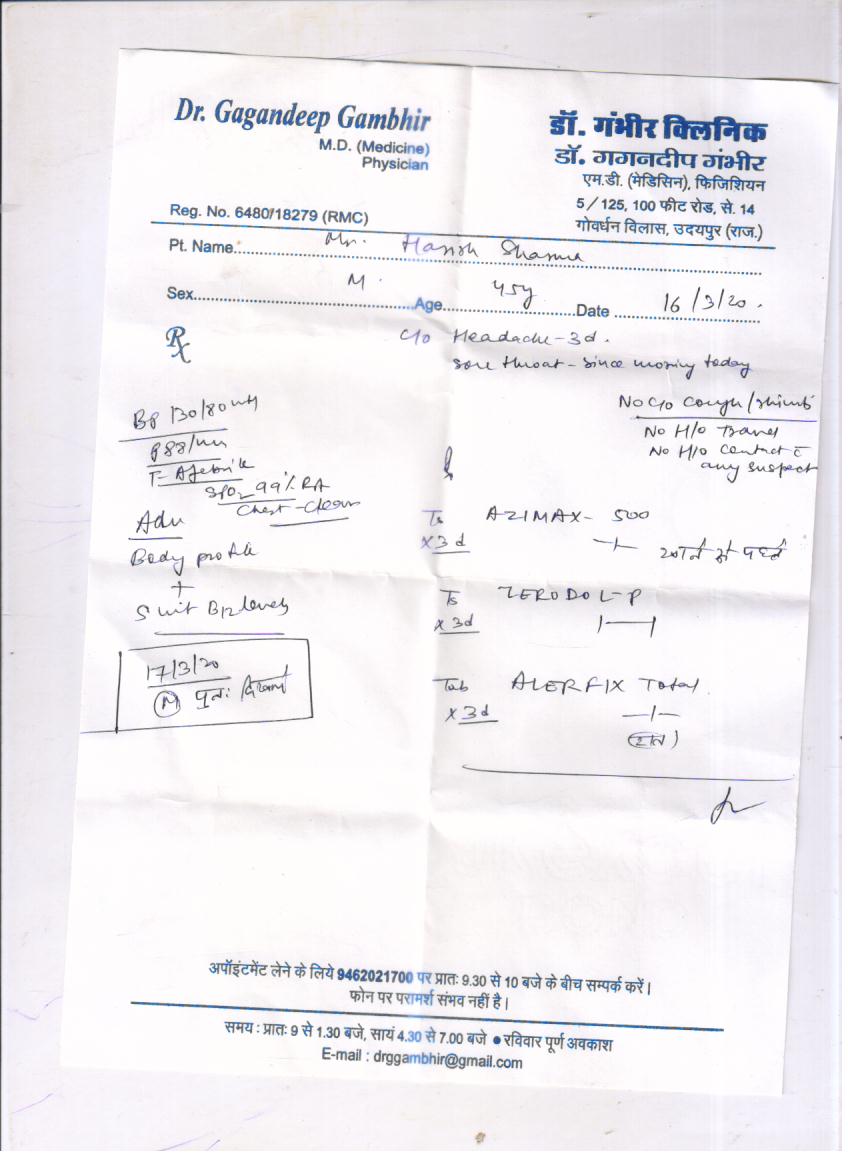 Dr. Gagandeep Gambhir
M.D. (Medicine)
Physician
Reg. No. 6480/18279 (RMC)
डॉ. गंभीर क्लिनिक
डॉ. गगनदीप गंभीर
एम.डी. (मेडिसिन), फिजिशियन
5/125, 100 फीट रोड, से. 14
गोवर्धन विलास, उदयपुर (राज.)
Pt. Name Mr. Harish Sharma
Sex M. Age 45y Date 16/3/20.
Rx
c/o Headache - 3d.
sore throat - since morning today
No c/o cough/
No H/o Travel
No H/o contact c̄
any suspect
BP 130/80
P 88/min
T- Afebrile
SPO2 99% RA
Chest - clear
Adv
Body profile
+
S vit B12 levels
17/3/20
M पुनः दिखाएं
AZIMAX - 500
x3d
खाने से पहले
ZERODOL-P
x 3d
Tab ALERFIX Total
x 3d
(रात)
अपॉइंटमेंट लेने के लिये 9462021700 पर प्रातः 9.30 से 10 बजे के बीच सम्पर्क करें।
फोन पर परामर्श संभव नहीं है।
समय : प्रातः 9 से 1.30 बजे, सायं 4.30 से 7.00 बजे ● रविवार पूर्ण अवकाश
E-mail : drggambhir@gmail.com